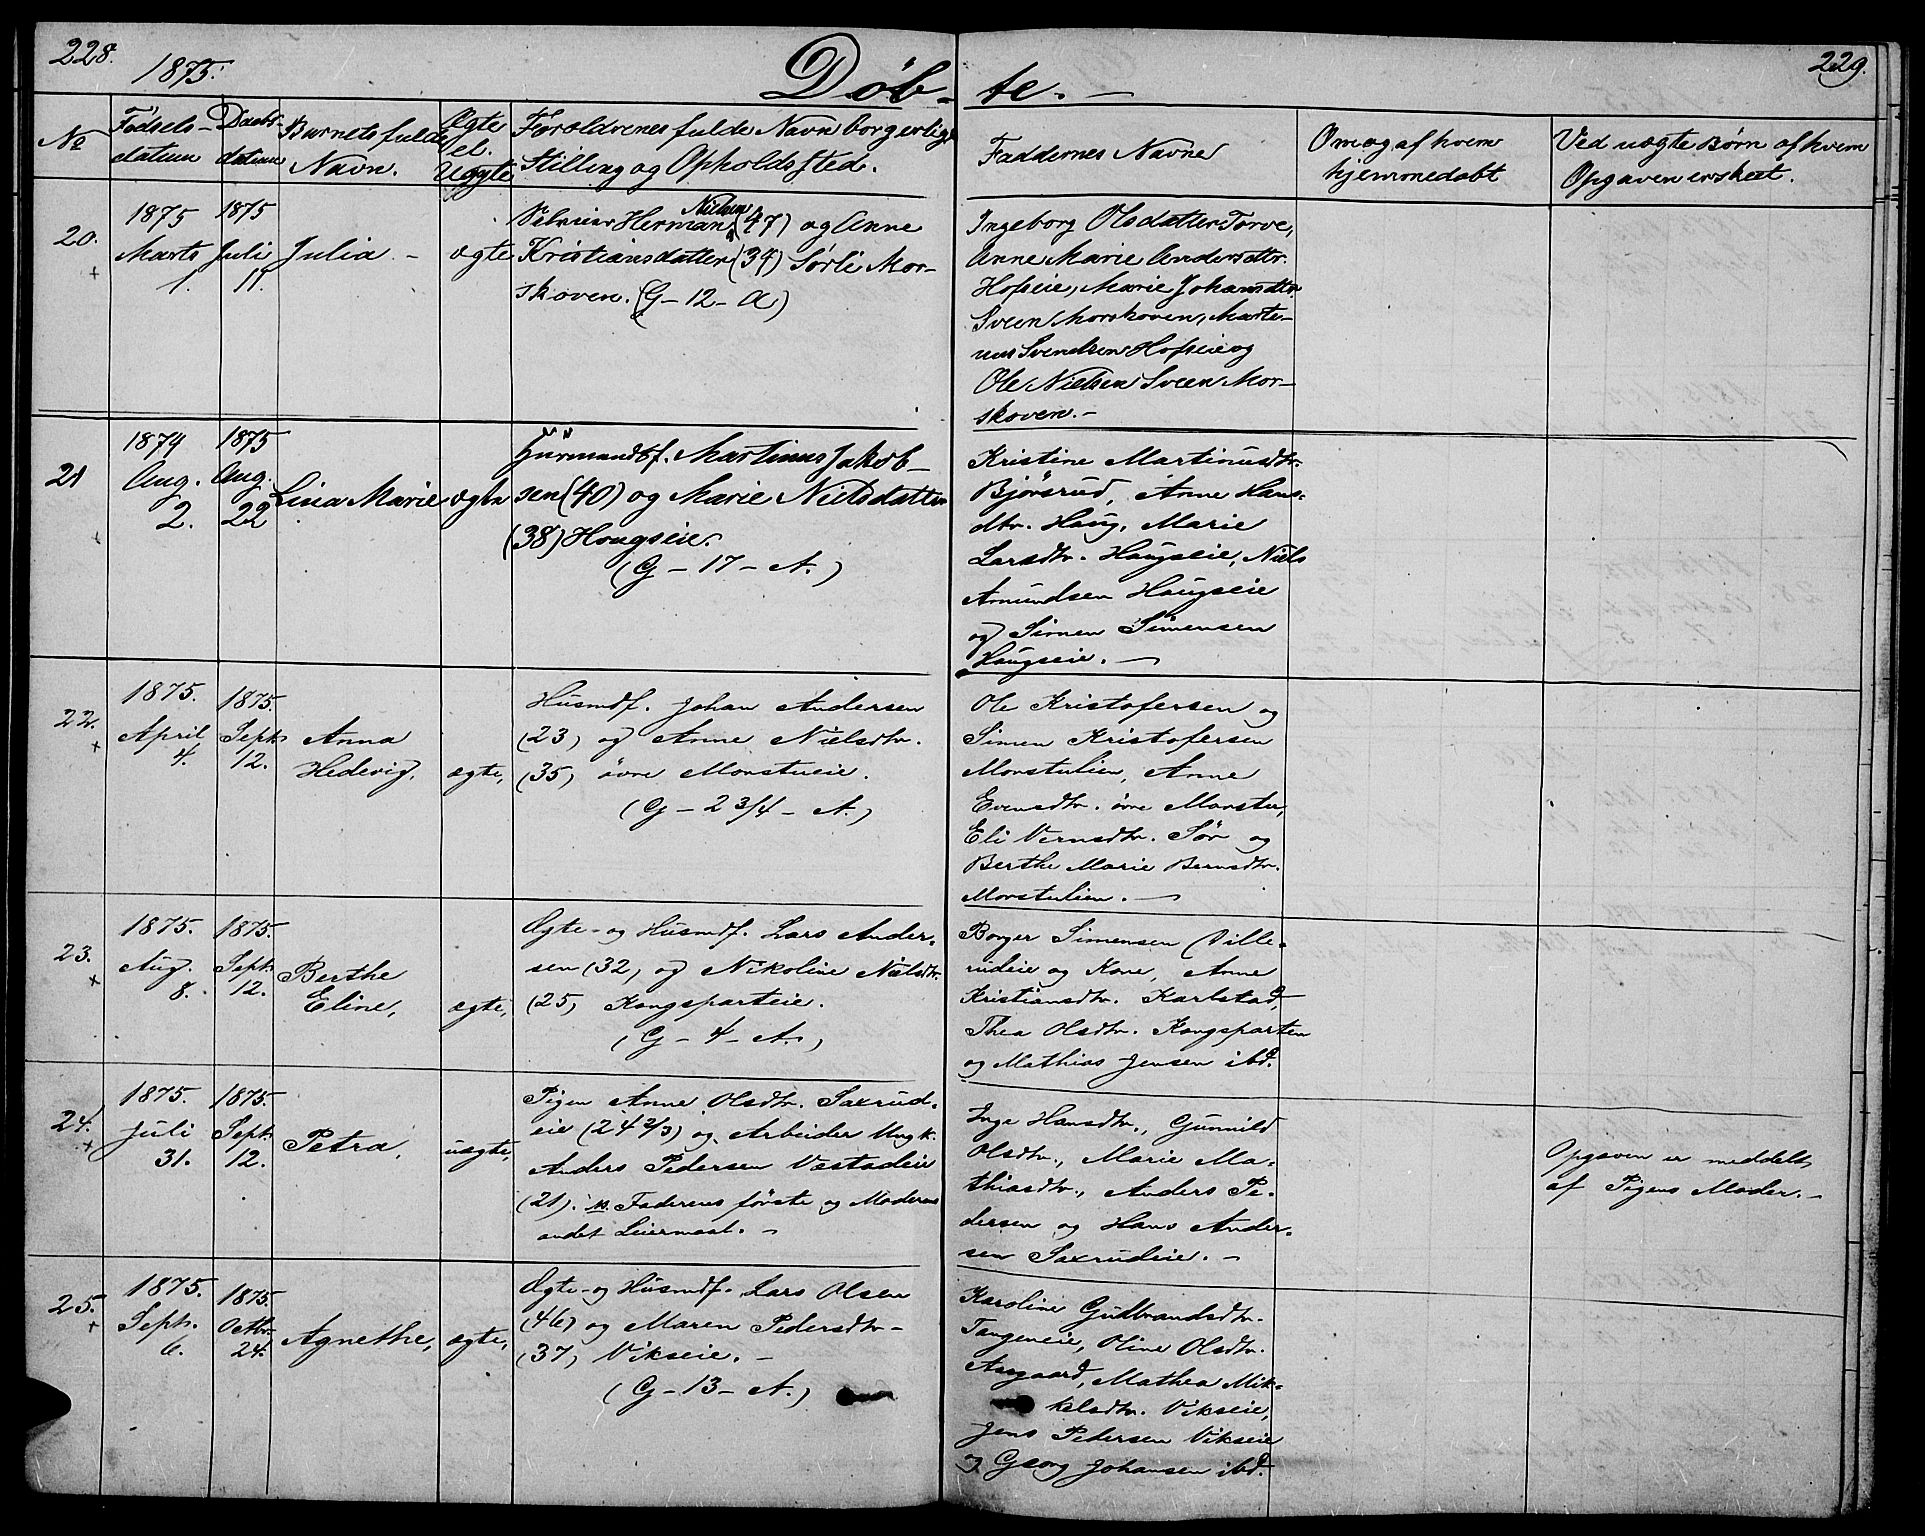 228.
1875.
Døb-
te. -
229.
No
Fødsels-
datum
Daabs-
datum
Barnets fulde
Navn.
Ægte
el.
Uægte
Forældrenes fulde Navn borgerlige
Stilling og Opholdssted.
Faddernes Navne
Om og af hvem
hjemmedøbt
Ved uægte Børn af hvem
Opgaven er skeet.
20.
1875
Marts
1.
1875
Juli
11.
Julia -
ægte
Selveier Herman Nielsen (47) og Anne
Kristiansdatter (39) Sørli Mor-
skoven. (G - 12 - A)
Ingeborg Olsdatter Torve,
Anne Marie Andersdtr.
Hofseie, Marie Johansdtr.
Sveen Morskoven, Marte-
nus Svendsen Hofseie og
Ole Nielsen Sveen Mor-
skoven. -
21
1874
Aug.
2.
1875
Aug.
22
Lina Marie
ægte
Huusmandsf. Martinus Jakob-
sen (40) og Marie Nielsdatter
(38) Hougseie.
(G - 17 - A.)
Kristine Martinusdtr.
Bjørsrud, Anne Hans-
dtr. Haug, Marie
Larsdtr. Haugseie, Niels
Amundsen Haugseie
og Simen Simensen
Haugseie. -
22.
1875.
April
4.
1875.
Sept.
12.
Anna
Hedevig,
ægte,
Husmdf. Johan Andersen
(23) og Anne Nielsdtr.
(35) øvre Morstueie.
(G - 2 3/4 - A.)
Ole Kristofersen og
Simen Kristofersen
Morstulien, Anne
Evensdtr. øvre Morstu,
Eli Vernsdtr. Sør og
Berthe Marie Bernsdtr.
Morstulien. -
23.
1875.
Aug.
8.
1875.
Sept.
12.
Berthe
Eline,
ægte,
Ægte- og Husmdf. Lars Ander-
sen (32) og Nikoline Nielsdtr.
(25) Kongsparteie.
(G - 4 - A.)
Borger Simensen Ville-
rudeie og Kone, Anne
Kristiansdtr. Karlstad,
Thea Olsdtr. Kongsparten
og Mathias Jensen ibd.
24.
1875.
Juli
31.
1875.
Sept.
12.
Petra,
uægte,
Pigen Anne Olsdtr. Saxrud-
eie (24 2/3) og Arbeider Ungk.
Anders Pedersen Væstadeie
(21). Faderens første og Moderens
andet Leiermaal. -
Inge Hansdtr., Gunnild
Olsdtr., Marie Ma-
thiasdtr., Anders Pe-
dersen og Hans Ander-
sen Saxrudeie. -
Opgaven er meddelt
af Pigens Moder. -
25.
1875.
Sept.
6.
1875.
Octbr.
24.
Agnethe,
ægte,
Ægte- og Husmdf. Lars Olsen
(46) og Maren Pedersdtr -
(37) Vikseie. -
(G - 13 - A.)
Karoline Gudbrandsdtr.
Tangeneie, Oline Olsdtr.
Aasgaard, Mathea Mik-
kelsdtr. Vikseie,
Jens Pedersen Vikseie
og Georg Johansen ibd.